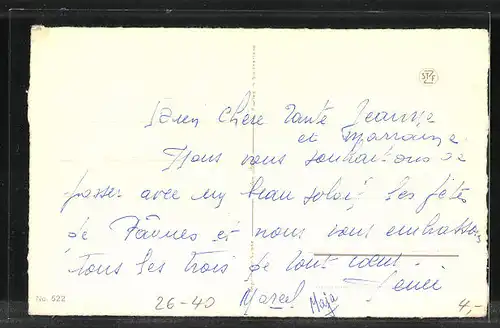 Bien chère Tante Jeanne
et Marraine
Nous vous souhaitons de
passer avec un beau soleil les fêtes
de Pâques et nous vous embrassons
tous les trois de tout cœur.
No. 622
26-40
Marcel
Maja
4,-